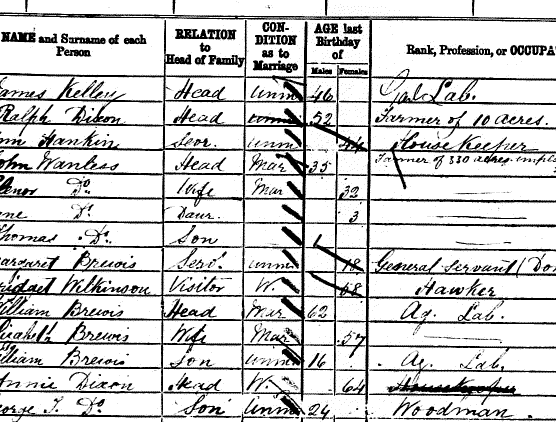 NAME and Surname of each Person RELATION to Head of Family CON-DITION as to Marriage AGE last Birthday of Males Females Rank, Profession, or OCCUPA
ames Kelley Head unm 46 Lab.
Ralph Dixon Head unm 52 Farmer of 10 acres.
Hankin Serv. unm 44 House Keeper
ohn Wanless Head Mar 35 Farmer of 330 acres emplo
lenor Do Wife Mar 32
ne Do Daur. 3
homas Do Son 1
argaret Brewis Serv. unm 18 General Servant (Dom
ridget Wilkinson Visitor W. 68 Hawker
illiam Brewis Head Mar 62 Ag. Lab.
lisabeth Brewis Wife Mar 57
illiam Brewis Son unm 16 Ag. Lab.
nnie Dixon Head W. 64 Housekeeper
eorge T. Do Son unm 24 Woodman